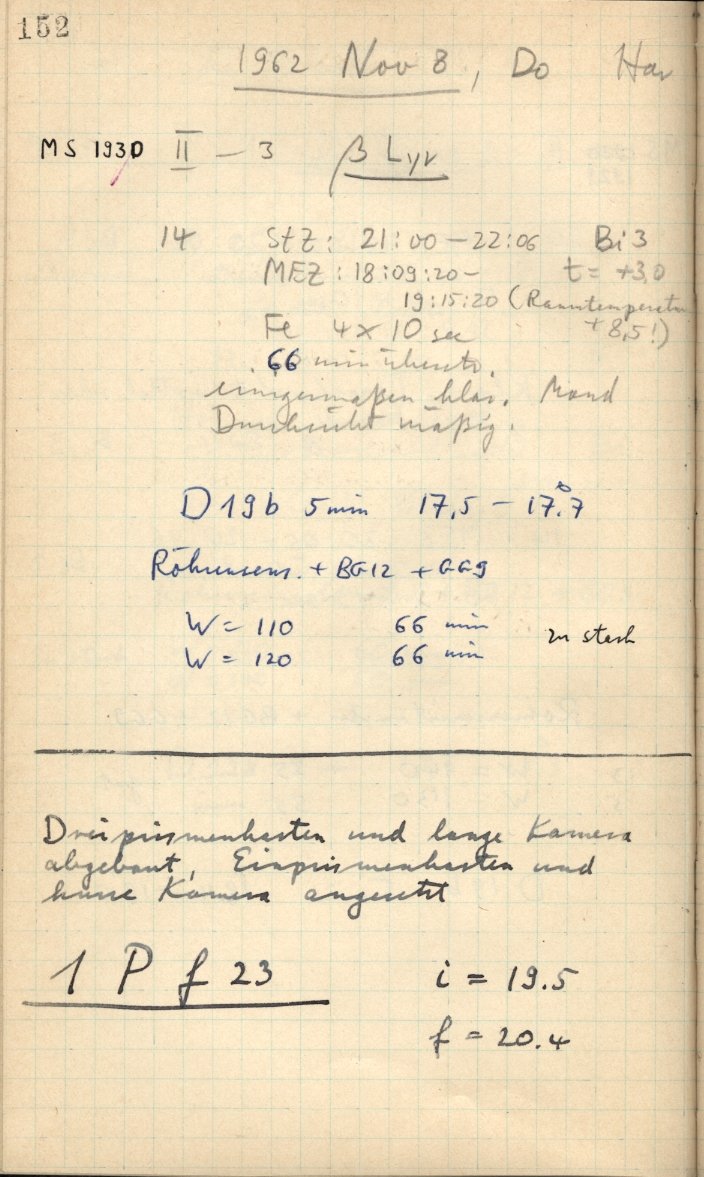 152
1962 Nov 8, Do Har
MS 1930 II – 3 β Lyr
14 StZ: 21:00 – 22:06 Bi 3
MEZ: 18:09:20 – t = +3,0
19:15:20 (Raumtemperatur
Fe 4 x 10 sec + 8,5!)
66 min
einigermaßen klar. Mond
Durchsicht mäßig.
D 19b 5 min 17,5 – 17.°7
Röhrensens. + BG12 + GG9
W = 110 66 min
zu stark
W = 120 66 min
Dreiprismenkasten und lange Kamera
abgebaut, Einprismenkasten und
kurze Kamera angesetzt
1 P f 23 i = 19.5
f = 20.4